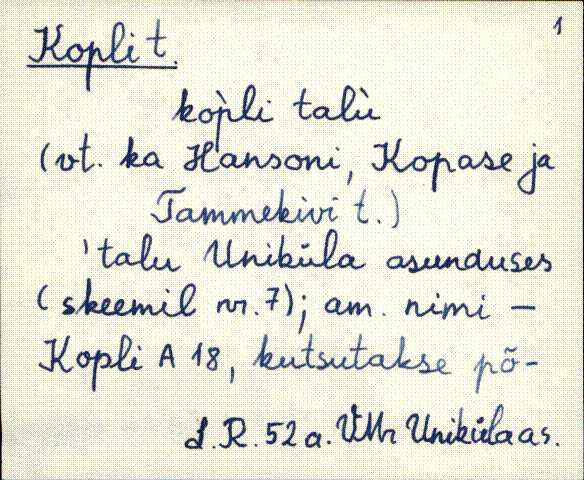 1
Kopli t.
kòpli talù
(vt. ka Hansoni, Kopase ja
Tammekivi t.)
'talu Uniküla asunduses
(skeemil nr. 7); am. nimi –
Kopli A 18, kutsutakse põ-
L.R. 52 a. VMr Uniküla as.